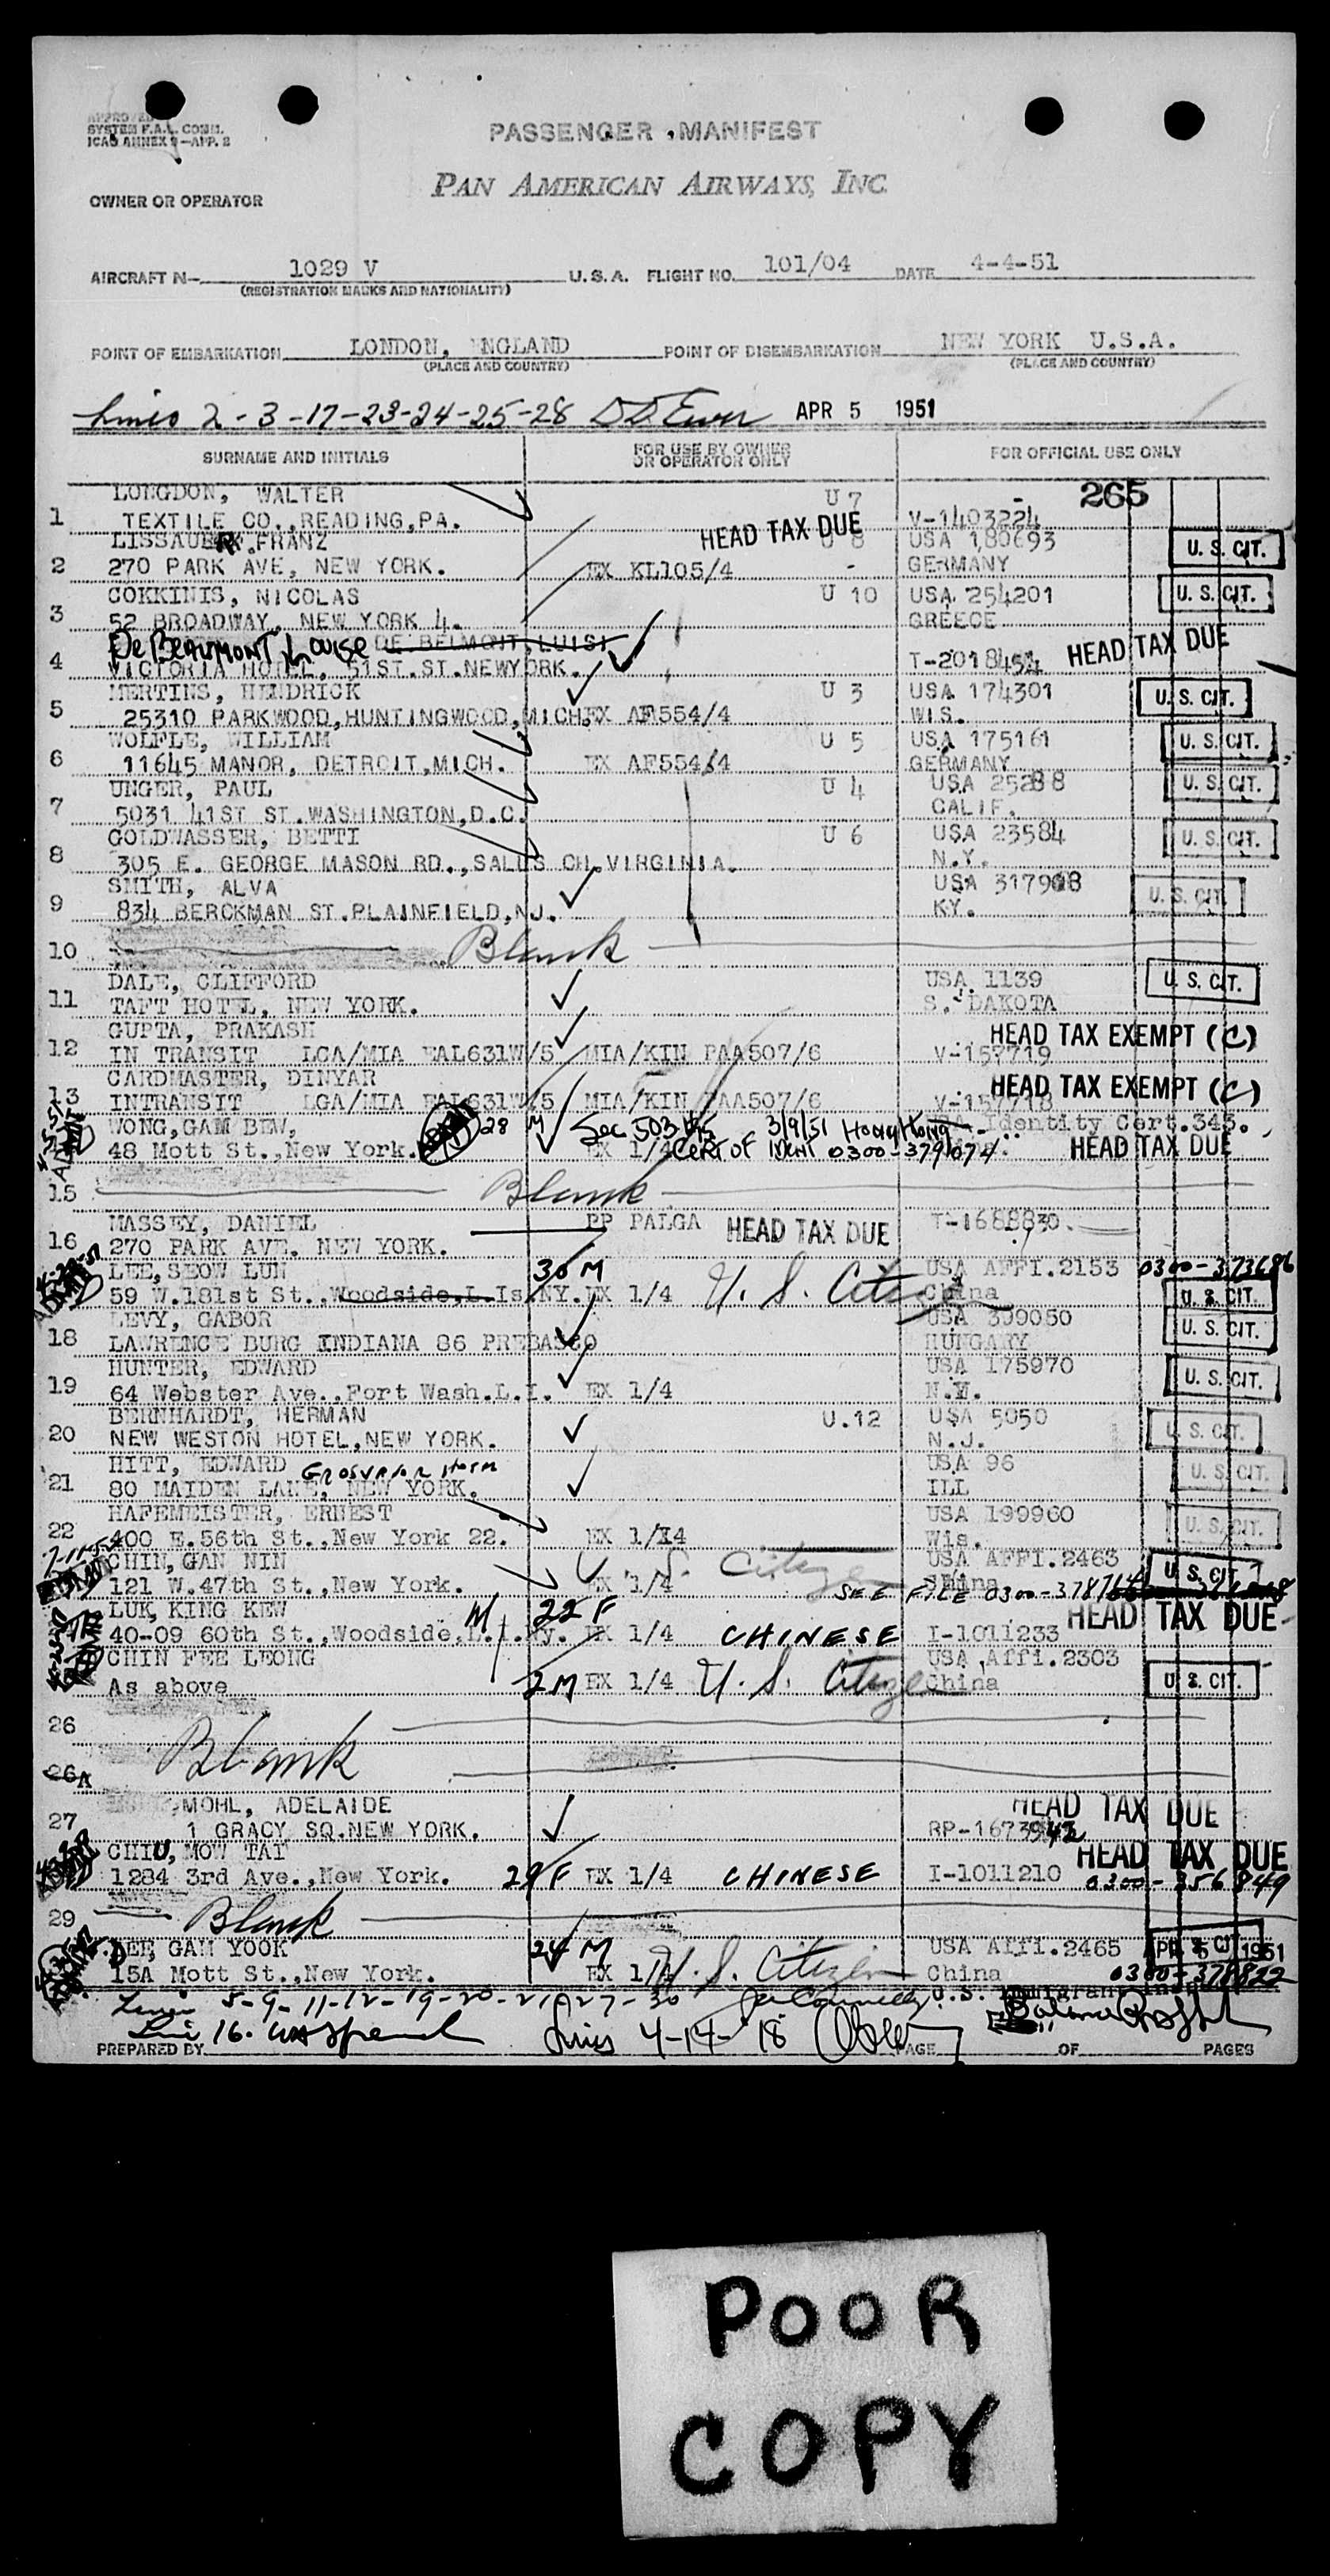 APPROVED
SYSTEM F.A.L. COMM.
ICAO ANNEX 9—APP. 2
PASSENGER MANIFEST
PAN AMERICAN AIRWAYS, INC.
OWNER OR OPERATOR
AIRCRAFT N— 1029 V U.S.A. FLIGHT NO. 101/04 DATE 4-4-51
(REGISTRATION MARKS AND NATIONALITY)
POINT OF EMBARKATION LONDON, ENGLAND POINT OF DISEMBARKATION NEW YORK U.S.A.
(PLACE AND COUNTRY) (PLACE AND COUNTRY)
Lines 2-3-17-23-24-25-28 APR 5 1951
SURNAME AND INITIALS FOR USE BY OWNER OR OPERATOR ONLY FOR OFFICIAL USE ONLY
265
LONGDON, WALTER U 7
1 TEXTILE CO., READING, PA. HEAD TAX DUE V-1403224
FRANZ U 8 USA 180693 U. S. CIT.
2 270 PARK AVE, NEW YORK. EX KL105/4 - GERMANY
COKKINIS, NICOLAS U 10 USA 254201 U. S. CIT.
3 52 BROADWAY, NEW YORK 4. GREECE
De BEAUMONT, Louise DE BELMONT, LUISI HEAD TAX DUE
4 VICTORIA HOTEL, 51ST.ST.NEWYORK. T-2018454
MERTINS, HENDRICK U 3 USA 174301 U. S. CIT.
5 25310 PARKWOOD,HUNTINGWOOD,MICH. EX AF554/4 WIS.
WOLFLE, WILLIAM U 5 USA 175161 U. S. CIT.
6 11645 MANOR, DETROIT,MICH. EX AF554/4 GERMANY
UNGER, PAUL U 4 USA 25288 U. S. CIT.
7 5031 41ST ST.WASHINGTON,D.C. CALIF.
GOLDWASSER, BETTI U 6 USA 23584 U. S. CIT.
8 305 E. GEORGE MASON RD., CH.VIRGINIA. N.Y.
SMITH, ALVA USA U. S. CIT.
9 834 BERCKMAN ST.PLAINFIELD,NJ. KY.
10 Blank
DALE, CLIFFORD USA 1139 U. S. CIT.
11 TAFT HOTEL, NEW YORK. S. DAKOTA
GUPTA, PRAKASH HEAD TAX EXEMPT (C)
12 IN TRANSIT LGA/MIA EAL631W/5 MIA/KIN PAA507/6 V-157719
CARDMASTER, DINYAR HEAD TAX EXEMPT (C)
13 INTRANSIT LGA/MIA EAL631W/5 MIA/KIN PAA507/6 V-157718
WONG,GAM BEW, 28 M Sec 503 3/9/51 Hong Kong Identity Cert.343.
48 Mott St.,New York. EX 1/4 Cert of Ident 0300-379074 HEAD TAX DUE
15 Blank
MASSEY, DANIEL PP PALGA HEAD TAX DUE T-1688830.
16 270 PARK AVE. NEW YORK.
LEE,SEOW LUN 30 M USA AFFI.2153 0300-373686
59 W.181st St.,Woodside,L.Is.NY. EX 1/4 U. S. Citizen China U. S. CIT.
LEVY, GABOR USA 399050 U. S. CIT.
18 LAWRENCE BURG INDIANA 86 PREBASCO HUNGARY
HUNTER, EDWARD USA 175970 U. S. CIT.
19 64 Webster Ave.,Port Wash.L.I. EX 1/4
BERNHARDT, HERMAN U.12 USA 5050 U. S. CIT.
20 NEW WESTON HOTEL,NEW YORK. N.J.
HITT, EDWARD USA 96 U. S. CIT.
21 80 MAIDEN LANE, NEW YORK. ILL
HAFEMEISTER, ERNEST USA 199960 U. S. CIT.
22 400 E.56th St.,New York 22. EX 1/14 Wis.
CHIN,GAN NIN U. S. Citizen USA AFFI.2463 U. S. CIT.
121 W.47th St.,New York. EX 1/4 SEE FILE China
LUK,KING KEW M 22 F HEAD TAX DUE
40-09 60th St.,Woodside,L.I.Ny. EX 1/4 CHINESE I-1011233
CHIN FEE LEONG USA Affi.2303
As above 2M EX 1/4 U. S. Citizen China U. S. CIT.
26 Blank
26A
MOHL, ADELAIDE HEAD TAX DUE
27 1 GRACY SQ.NEW YORK.
CHIU, MOW TAI HEAD TAX DUE
1284 3rd Ave.,New York. 29 F EX 1/4 CHINESE I-1011210 0300-356849
29 Blank
LEE, GAM YOOK 24 M USA Affi.2465 APR 5 1951
15A Mott St.,New York. EX 1/4 U. S. Citizen China 0300-378822
Lines 5-9-11-12-19-20-21-27-30 U.S. Immigrant
Line 16. Lines 4-14-18
PREPARED BY PAGE OF PAGES
POOR
COPY